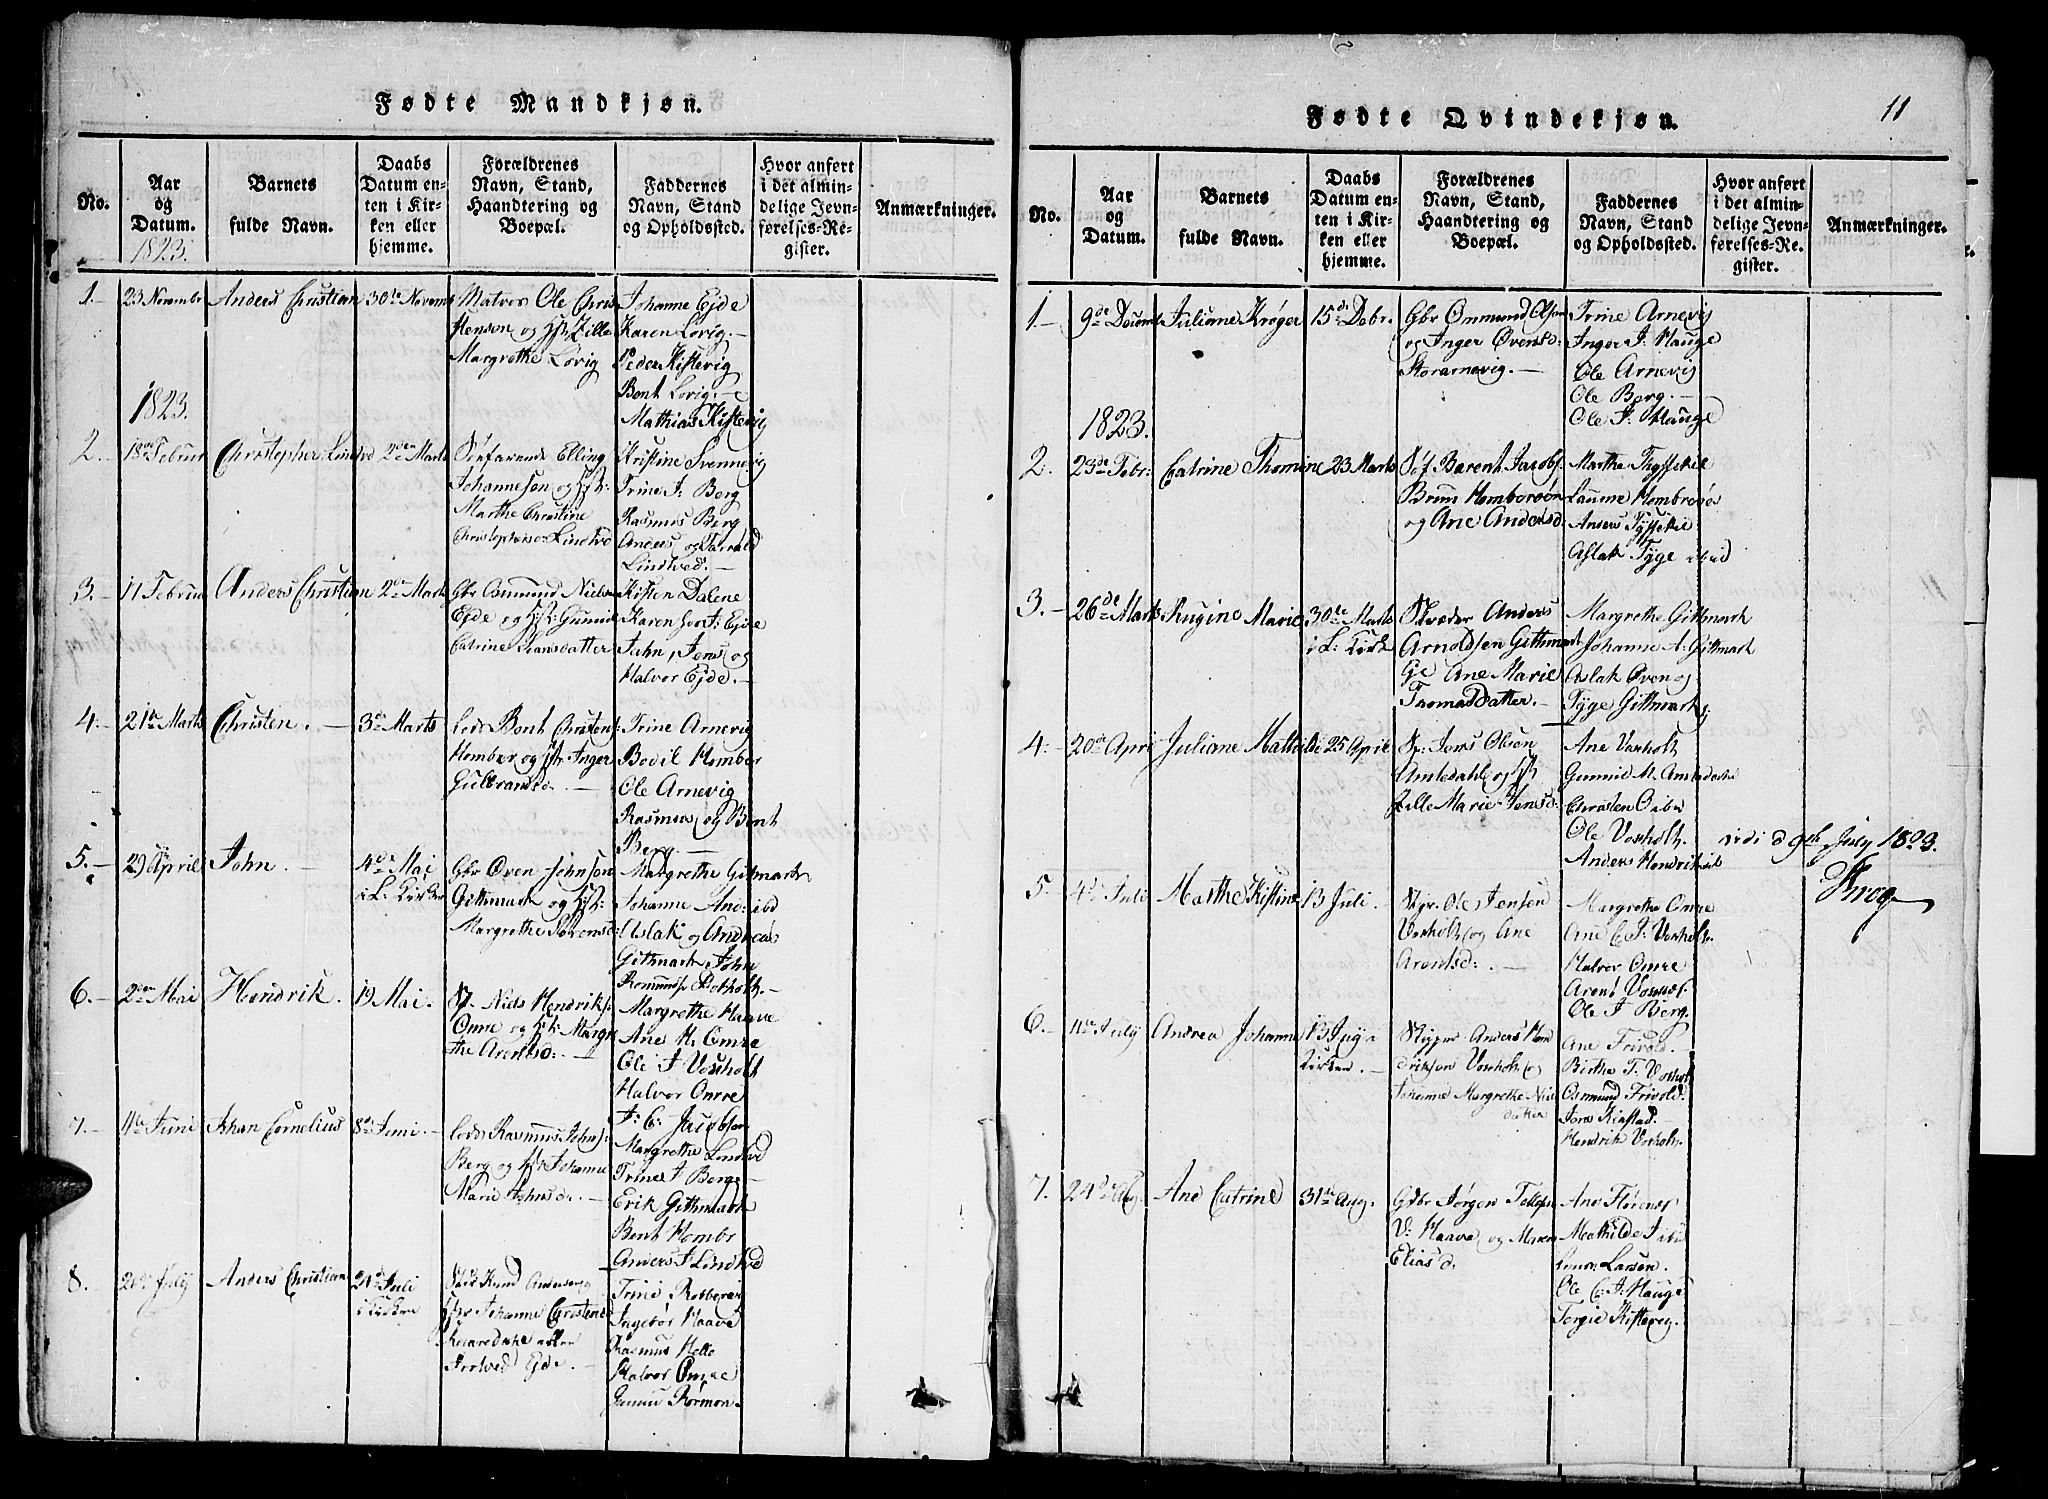 Fødte Mandkjøn.
No.
Aar
og
Datum.
1823.
Barnets
fulde Navn.
Daabs
Datum en-
ten i Kir-
ken eller
hjemme.
Forældrenes
Navn, Stand,
Haandtering og
Boepæl.
Faddernes
Navn, Stand
og Opholdssted.
Hvor anført
i det almin-
delige Jevn-
førelses-Re-
gister.
Anmærkninger.
1.
23 Novembr
Anders Christian
30te Novemb
Matros Ole Chris
tenson og Hst: Zille
Margrethe Lovig
Johanne Ejde
Karen Lovig.
Peder Kistevig
Bent Lovig.
Mathias Kistevig
1823.
2.
18de Februr
Christopher Lindtvd
2den Marts
Søefarende Elling
Johannesøn og Hst:
Marthe Christine
Lindtvd
Kristine Svennevig
Trine J: Berg
Rasmus Berg
Anders og
Lindtved.
3.
11 Februa
Anders Christian
2den Marts
Gbr Osmund Niels
Ejde og Hst: Gunnild
Catrine Hansdatter
Kisten Dalene
Karen J: Ejde
John, Jens og
Halvor Ejde.
4.
21de Marts
Christen.
3de Marts
Lods Bent Christens:
Hombor og Hst Inger
Gulbransd.
Trine Arnevig
Bodil Hombor
Ole Arnevig
Rasmus og Bent
Berg.
5.
29 April
John.
4de Mai
i L. Kirke
Gbr Øven Johnsøn
Githmark og Hst:
Margrethe Sørensd:
Margrethe Gitmark
Johanne And: ibd
Aslak og Andreas
Githmark, John

6.
2den Mai
Hendrik.
19 Mai.
Sk. Niels Hendriks:
Omre og Hst: Margre
the Arentsd:
Margrethe Haave
Ane H. Omre
Ole J Voxholt
Halvor Omre
J: C: Jacobsen
7.
4de Juni
Johan Cornelius
8de Juni.
Lods Rasmus Johns:
Berg og Hst Johanne
Marie Johnsd.
Margrethe Lindtvd
Trine J Berg
Erik Githmark
Bent Hombr
Anders J Lindtvd
8.
20de July
Anders Christian
24de Juli
i Kirken
Knud Anders: og
Hst Johanne Christensd
Ejde.
Trine
Ingebor Haave
Rasmus Helle
Halvor Omre
Gunnu Rørmon.
Fødte Qvindekjøn.
11
No.
Aar
og
Datum.
Barnets
fulde Navn.
Daabs
Datum en-
ten i Kir-
ken eller
hjemme.
Forældrenes
Navn, Stand,
Haandtering og
Boepæl.
Faddernes
Navn, Stand
og Opholdssted.
Hvor anført
i det almin-
delige Jevn-
førelses-Re-
gister.
Anmærkninger.
1.
9de Decemb
Juliane Krøger
15de Debr.
Gbr Onmund Olsen
og Inger Øvensd:
Storarnevig.
Trine Arnevig
Inger J: Hauge
Ole Arnevig
Ole Berg.
Ole J: Hauge
1823.
2.
23de Febr:
Catrine Thomine
23 Marts
Søf Barent Jacobs:
Brun Homborsøn
og Ane Andersd:
Marthe Tyssekil
Lamme Hombrsøe
Anders Tysseki
Aslak Tyge ibid
3.
26de Marts
Rugine Marie
30te Marts
i L: Kirke
Skræder Anders
Arnoldsen Githmark
Ane Marie
Thomasdatter.
Margrethe Gittmark
Johanne A: Gitmark
Aslak Øven og
Tyge Gittmark
4.
20de April
Juliane Mathilde
25 April
Sk: Jens Olsen
Amledahl og Hst
Zille Marie Jensd:
Ane Voxholt
Gunnil M. Amledahl
Christen Oibu
Ole Voxholt.
Anders Hendriksen
vidi d 9de July 1823.
Krog
5.
4de Juli
Marthe Kistine
13 Juli.
Skpr. Ole Jensen
Voxholt og Ane
Arentsd:
Margrethe Omre
Ane C. J: Voxholt.
Halvor Omre
Arent Voxholt.
Ole J Berg.
6.
11de July
Andrea Johanne
13 July i
Kirken.
Skipper Anders Hen
driksen Voxholt og
Johanne Margrethe Niels
datter
Ane Frivold.
Birthe T. Voxholt
Osmund Frivold:
Jens Kiestad.
Hendrik Voxholt.
7.
24de Aug.
Ane Catrine
31te Aug.
Gdbr Jørgen Tellefs
V: Haave og Maren
Elias d:
Ane Florenes
Mathilde J ibi
Larsen.
Ole C: J: Hauge
Torgie Kistevig.